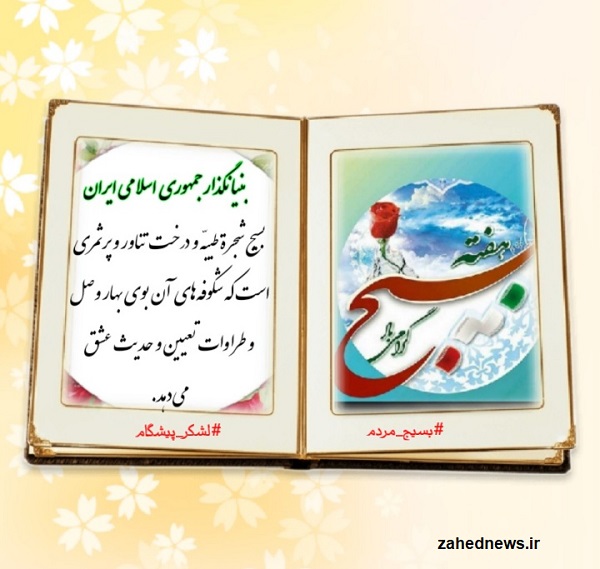 هفته
بسیج
گرامی باد
#بسیج_مردم
بنیانگذار جمهوری اسلامی ایران
بسیج شجرة طیبّه و درخت تناور و پرثمری
است که شکوفه های آن بوی بهار وصل
و طراوات تعیین و حدیث عشق
می دهد.
#لشکر_پیشگام
zahednews.ir